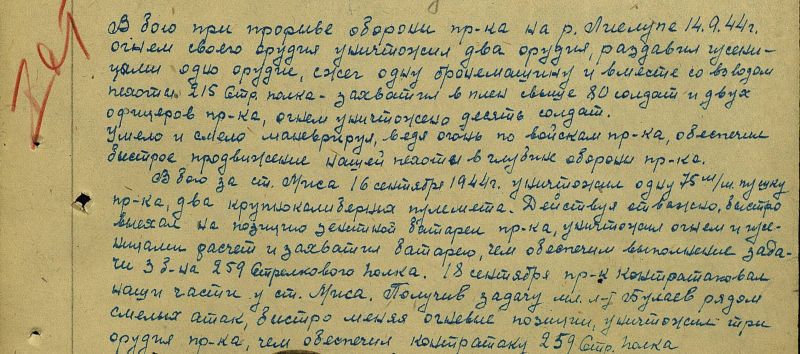 В бою при прорыве оборони пр-ка на р. Лиелупе 14.9.44г.
огнем своего орудия уничтожил два орудия, раздавил гусени-
цами одно орудие, сжег одну бронемашину и вместе со взводом
пехоты 215 Стр. полка - захватил в плен свыше 80 солдат и двух
офицеров пр-ка, огнем уничтожено десять солдат.
Умело и смело маневрируя, ведя огонь по войскам пр-ка, обеспечил
быстрое продвижение нашей пехоты в глубин обороны пр-ка.
В бою за ст. Миса 16 сентября 1944г. уничтожил одну 75 м/м. пушку
пр-ка, два крупнокалиберных пулемета. Действуя отважно, быстро
выехал на позицию зенитной батареи пр-ка, уничтожил огнем и гусе-
ницами расчет и захватил батарею, чем обеспечил выполнение зада-
чи 3 б-на 259 Стрелкового полка. 18 сентября пр-к контратаковал
наши части у ст. Миса. Получив задачу мл. л-т Булаев рядом
смелых атак, быстро меняя огневые позиции, уничтожил три
орудия пр-ка, чем обеспечил контратаку 259 Стр. полка